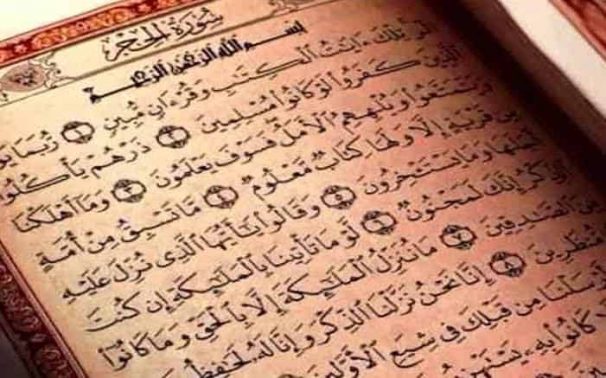 سُورَةُ الحِجْرِ
بِسْمِ اللَّهِ الرَّحْمَٰنِ الرَّحِيمِ
الٓر تِلْكَ ءَايَٰتُ ٱلْكِتَٰبِ وَقُرْءَانٍ مُّبِينٍ ١ رُّبَمَا يَوَ
ٱلَّذِينَ كَفَرُوا۟ لَوْ كَانُوا۟ مُسْلِمِينَ ٢ ذَرْهُمْ يَأْكُلُوا۟
وَيَتَمَتَّعُوا۟ وَيُلْهِهِمُ ٱلْأَمَلُ فَسَوْفَ يَعْلَمُونَ ٣ وَمَآ أَهْلَكْنَا
مِن قَرْيَةٍ إِلَّا وَلَهَا كِتَابٌ مَّعْلُومٌ ٤ مَّا تَسْبِقُ مِنْ أُمَّةٍ
أَجَلَهَا وَمَا يَسْتَـْٔخِرُونَ ٥ وَقَالُوا۟ يَٰٓأَيُّهَا ٱلَّذِى نُزِّلَ عَلَيْهِ
ٱلذِّكْرُ إِنَّكَ لَمَجْنُونٌ ٦ لَّوْ مَا تَأْتِينَا بِٱلْمَلَٰٓئِكَةِ إِن كُنتَ
مِنَ ٱلصَّٰدِقِينَ ٧ مَا نُنَزِّلُ ٱلْمَلَٰٓئِكَةَ إِلَّا بِٱلْحَقِّ وَمَا كَانُوٓا۟
مُّنظَرِينَ ٨ إِنَّا نَحْنُ نَزَّلْنَا ٱلذِّكْرَ وَإِنَّا لَهُۥ لَحَٰفِظُو
أَرْسَلْنَا مِن قَبْلِكَ فِى شِيَعِ ٱلْأَوَّلِينَ
كَانُوا۟ بِهِۦ